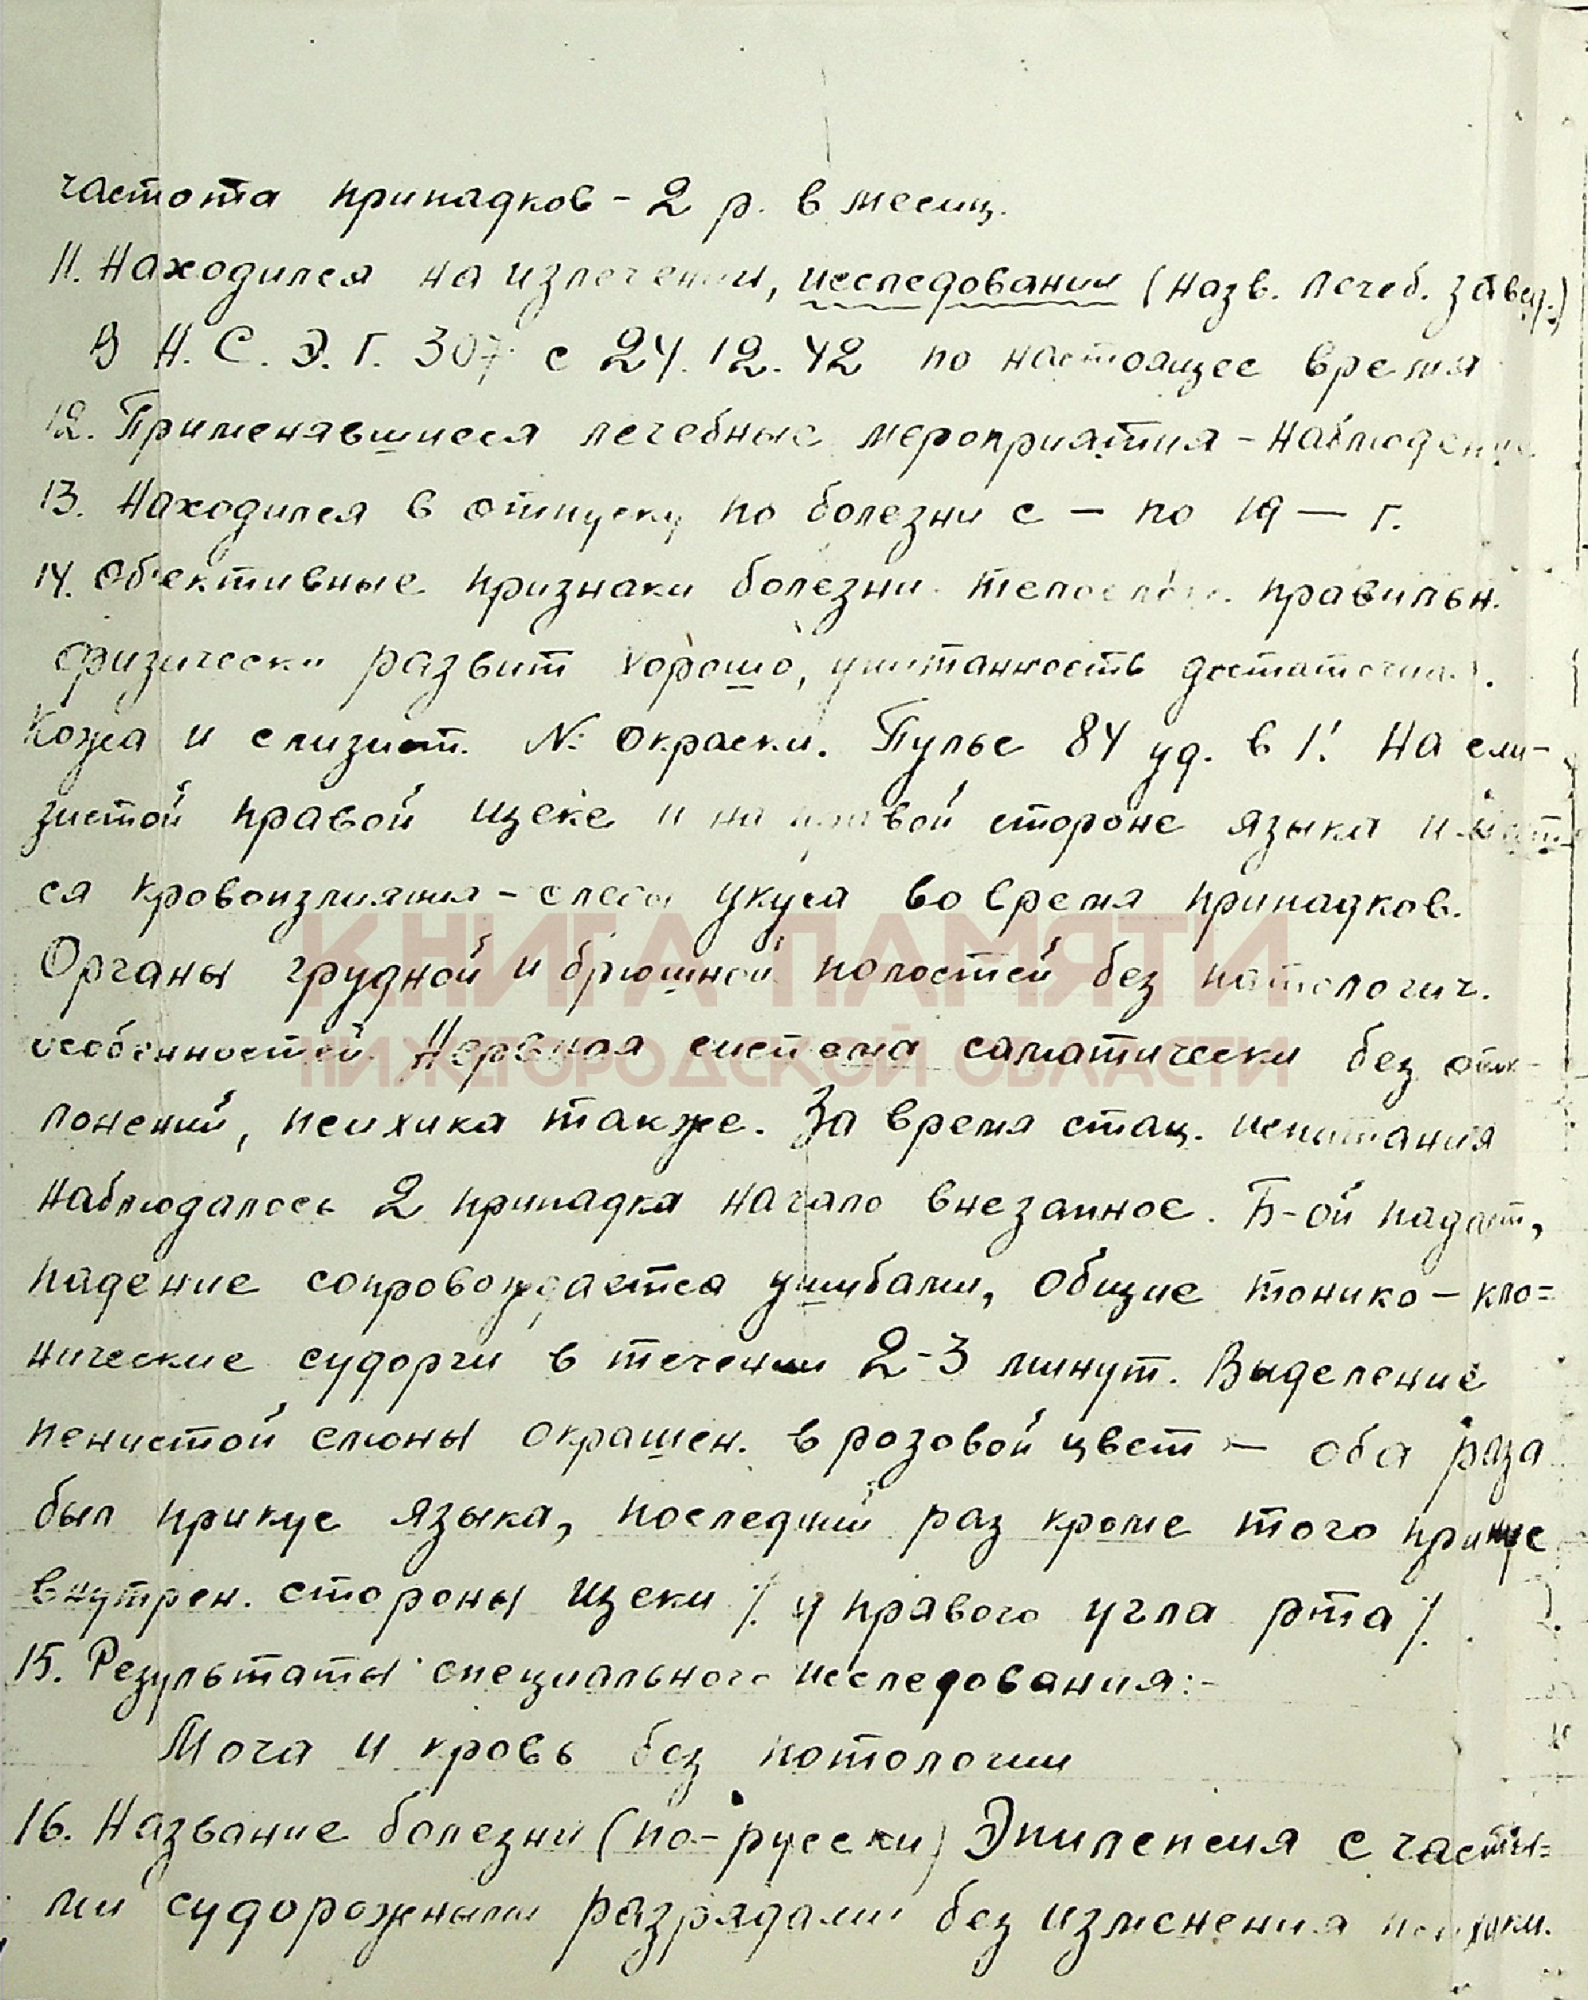 частота припадков - 2 р. в месяц.
11. Находился на излечении, исследовании (назв. лечеб. завед.)
В Н. С. Э. Г. 307 с 24. 12. 42 по настоящее время
12. Применявшиеся лечебные мероприятия - наблюдение
13. Находился в отпуску по болезни с — по 19 — г.
14. Об'ективные признаки болезни. телослож. правильн.
физически развит хорошо, упитанность достаточная.
Кожа и слизист. N. окраски. Пульс 84 уд. в 1'. На сли-
зистой правой щеке и на правой стороне языка имеют
ся кровоизлияния - следы укуса во время припадков.
КНИГА ПАМЯТИ
Органы грудной и брюшной полостей без патологич.
особенностей. Нервная система саматически без отк-
НИЖЕГОРОДСКОЙ ОБЛАСТИ
лонений, психика также. За время стац. испытания
наблюдалось 2 припадка начало внезапное. Б-ой падает,
падение сопровождается ушибами, общие тонико - кло=
нические судорги в течении 2-3 минут. Выделение
пенистой слюны окрашен. в розовой цвет — оба раза
был прикус языка, последний раз кроме того прикус
внутрен. стороны щеки /. у правого угла рта /.
15. Результаты специального исследования:-
Моча и кровь без потологии
16. Название болезни (по-русски) Эпилепсия с часты=
ми судорожными разрядами без изменения психики.